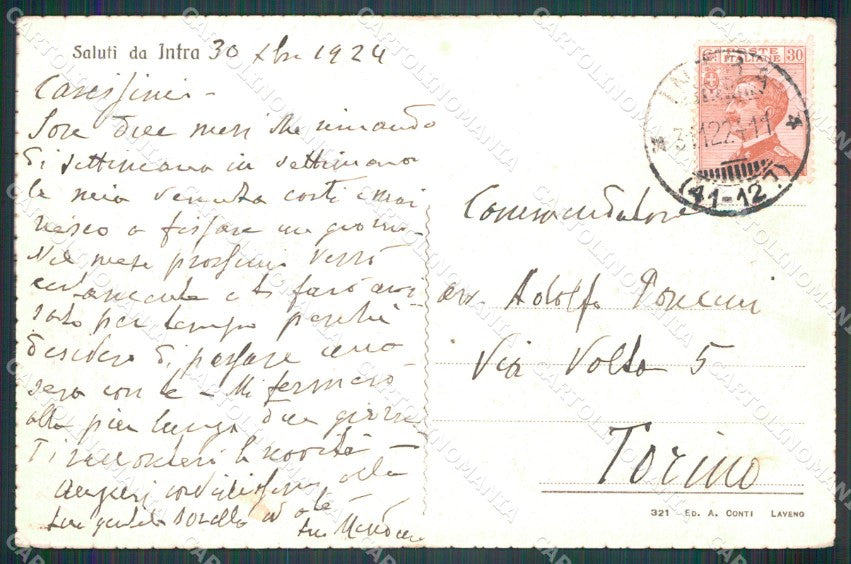 Saluti da Intra 30 Xbre 1924
Carissimi -
Sono due mesi che rimando
di settimana in settimana
la mia venuta costì e mai
riesco a fissare un giorno.
Nel mese prossimo verrò
certamente e ti farò avvi
sato per tempo perchè
desidero di passare una
sera con te - Mi fermerò
alla più lunga due giorni
Ti
auguri cordialissimi alla
tua gentile sorella ed a te
tuo
POSTE ITALIANE 30
INTRA
(41-12)
Commendatore
avv. Adolfo
Via Volta 5
Torino
321 ED. A. CONTI LAVENO
CARTOLINOMANIA